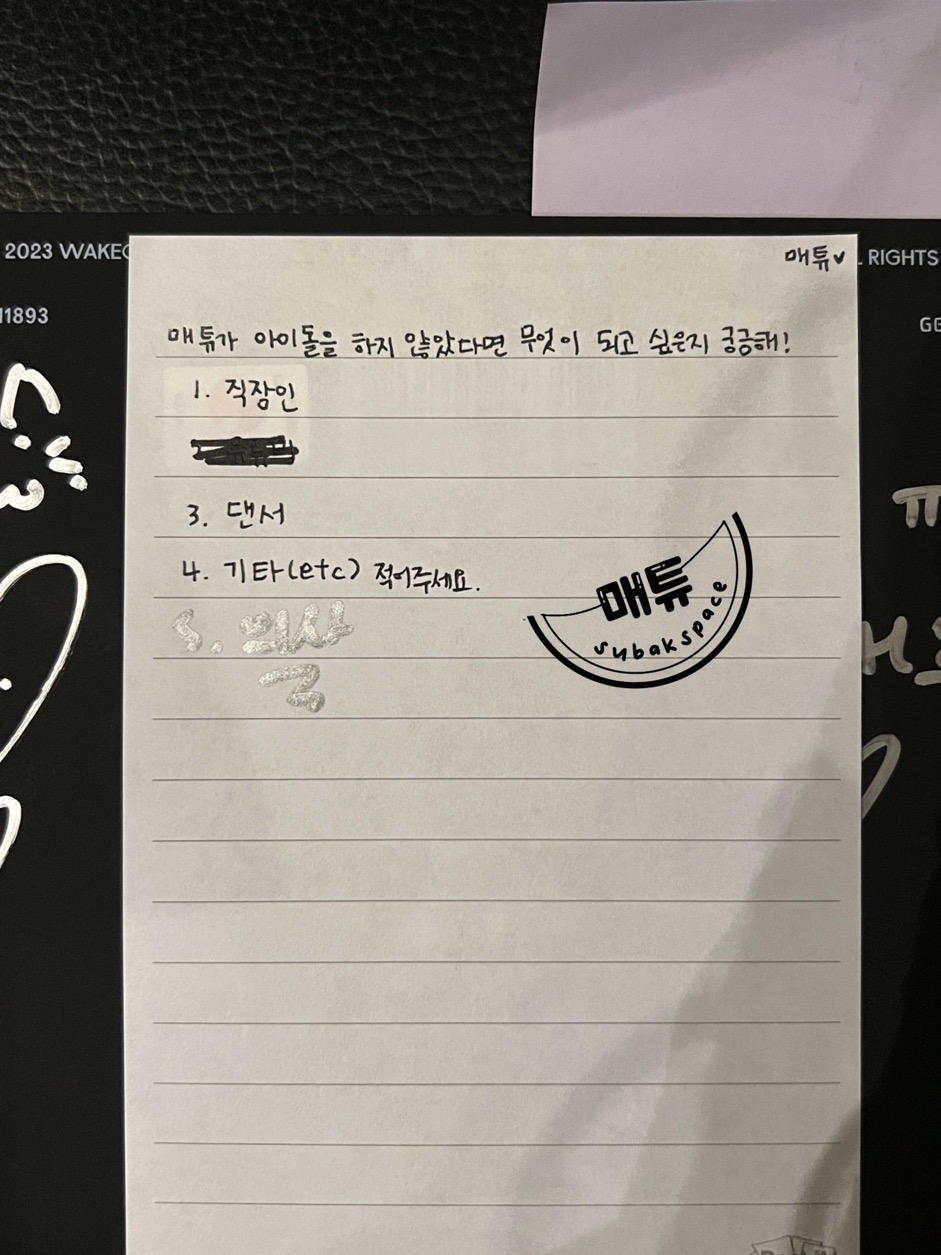 2023 WAKEO
RIGHTS
11893
GE
매튜♥
매튜가 아이돌을 하지 않았다면 무엇이 되고 싶은지 궁금해!
1. 직장인
3. 댄서
4. 기타(etc) 적어주세요.
5. 의사
매튜
subakspace